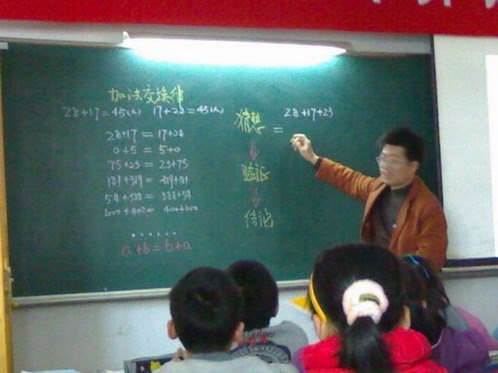 加法交换律
28+17=45(人) 17+28=45(人)
28+17 = 17+28
0+5 = 5+0
75+23 = 23+75
a+b=b+a
猜想
验证
结论
28+17+23
=